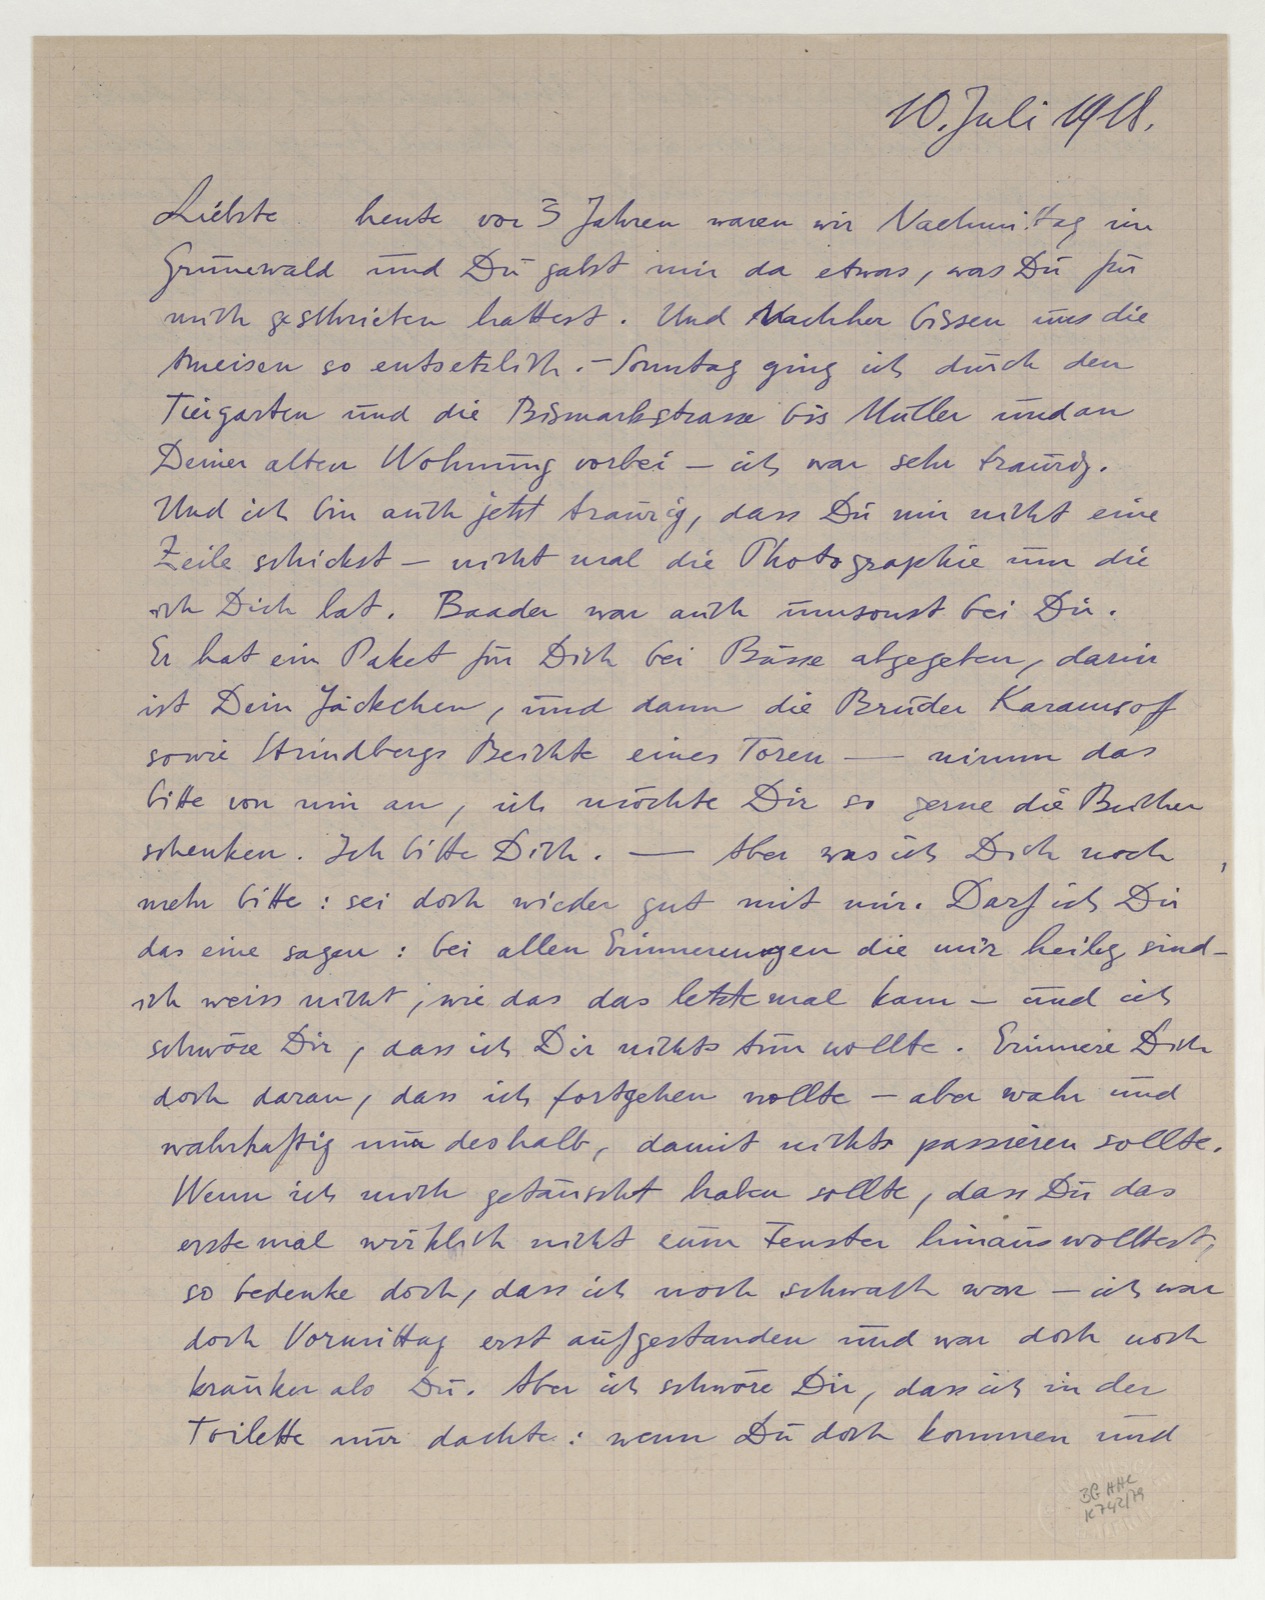 10. Juli 1918.
Liebste heute vor 3 Jahren waren wir Nachmittag im
Grunewald und Du gabst mir da etwas, was Du für
mich geschrieben hattest. Und Nachher bissen uns die
Ameisen so entsetzlich. – Sonntag ging ich durch den
Tiergarten und die Bismarkstrasse bis Mutter und an
Deiner alten Wohnung vorbei – ich war sehr traurig.
Und ich bin auch jetzt traurig, dass Du mir nicht eine
Zeile schickst – nicht mal die Photographie um die
ich Dich bat. Baader war auch umsonst bei Dir.
Er hat ein Paket für Dich bei Büsse abgegeben, darin
ist Dein Jäckchen, und dann die Brüder Karamsoff
sowie Strindbergs Beichte eines Toren — nimm das
bitte von mir an, ich möchte Dir so gerne die Bücher
schenken. Ich bitte Dich. — Aber was ich Dich noch
mehr bitte: sei doch wieder gut mit mir. Darf ich Dir
das eine sagen: bei allen Erinnerungen die mir heilig sind –
ich weiss nicht, wie das das letzte mal kam – und ich
schwöre Dir, dass ich Dir nichts tun wollte. Erinnere Dich
doch daran, dass ich fortgehen wollte – aber wahr und
wahrhaftig nur deshalb, damit nichts passieren sollte.
Wenn ich mich getäuscht haben sollte, dass Du das
erste mal wirklich nicht zum Fenster hinauswolltest,
so bedenke doch, dass ich noch schwach war – ich war
doch Vormittag erst aufgestanden und war doch noch
kränker als Du. Aber ich schwöre Dir, dass ich in der
Toilette nur dachte: wenn Du doch kommen und
BG HHC
K 742/79